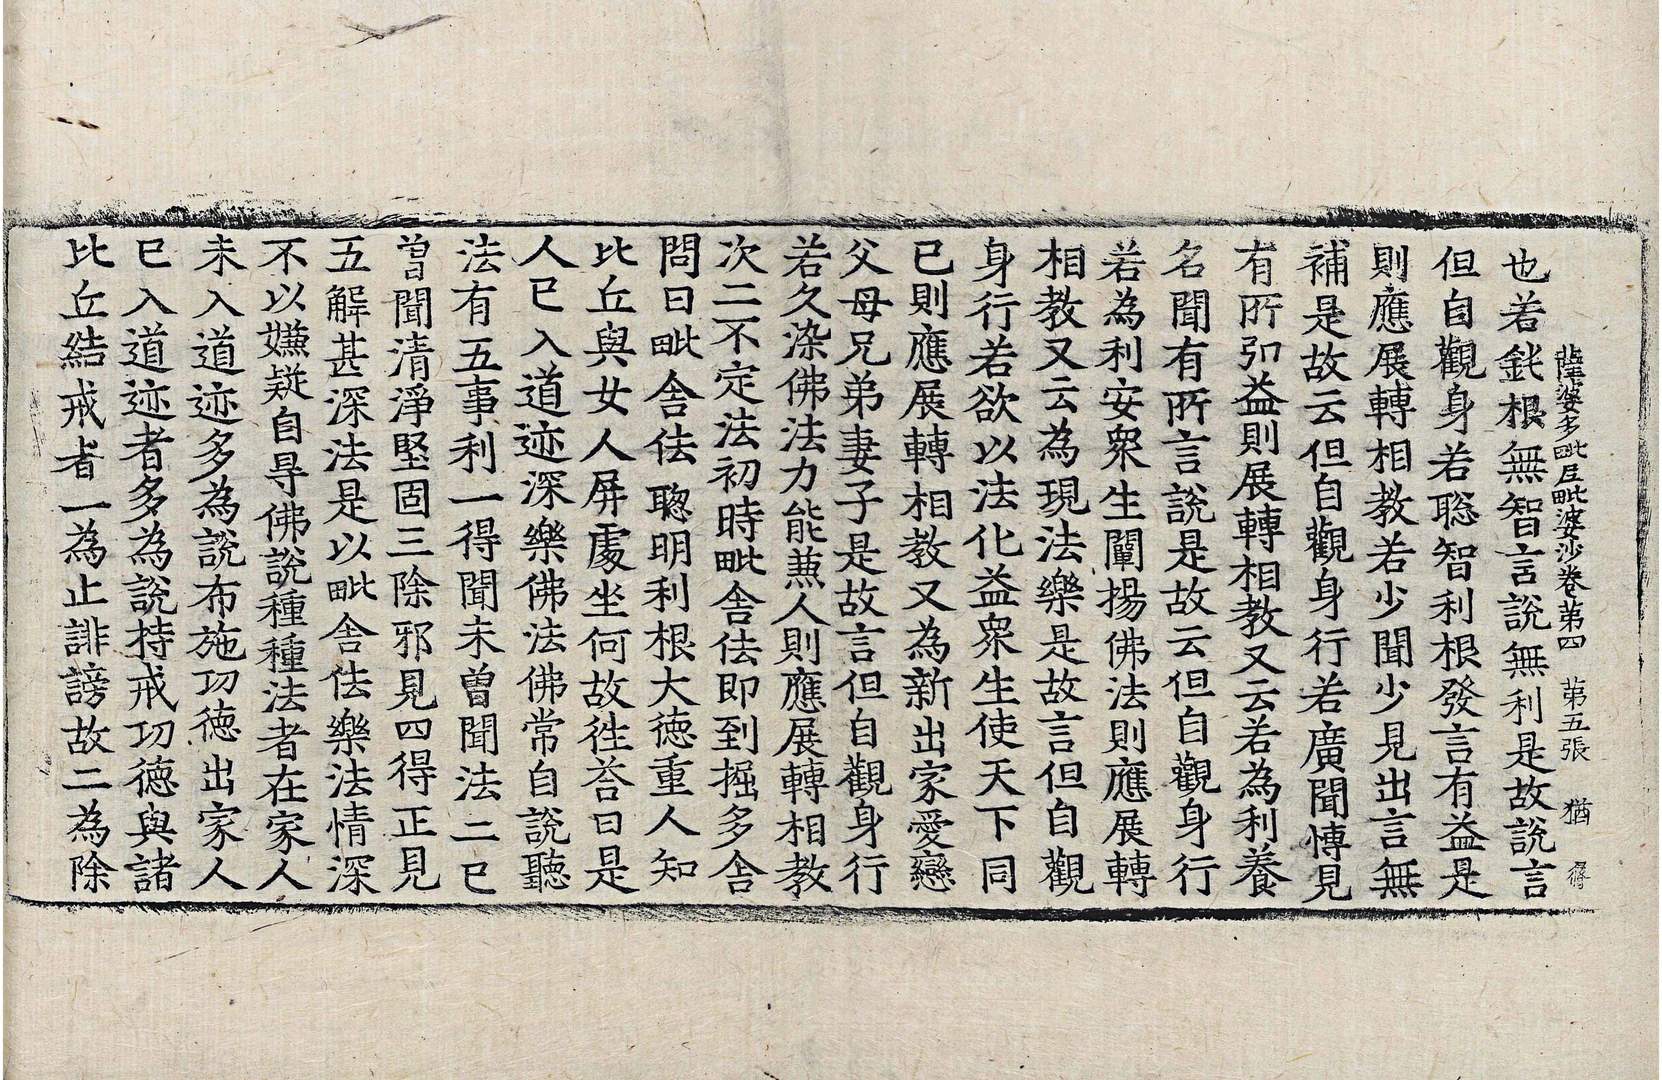 薩婆多毗尼毗婆沙卷第四　第五張　猶　得
也若鈍根無智言說無利是故說言
但自觀身若聡智利根發言有益是
則應展轉相教若少聞少見出言無
補是故云但自觀身行若廣聞愽見
有所弘益則展轉相教又云若為利養
名聞有所言說是故云但自觀身行
若為利安衆生闡揚佛法則應展轉
相教又云為現法樂是故言但自觀
身行若欲以法化益衆生使天下同
已則應展轉相教又為新出家愛戀
父母兄弟妻子是故言但自觀身行
若久染佛法力能兼人則應展轉相教
次二不定法初時毗舍佉即到掘多舍
問曰毗舍佉聦明利根大德重人知
比丘與女人屏處坐何故徃荅曰是
人已入道迹深樂佛法佛常自說聽
法有五事利一得聞未曽聞法二已
曽聞清淨堅固三除邪見四得正見
五解甚深法是以毗舍佉樂法情深
不以嫌疑自㝵佛說種種法者在家人
未入道迹多為說布施功德出家人
已入道迹者多為說持戒功德與諸
比丘結戒者一為止誹謗故二為除